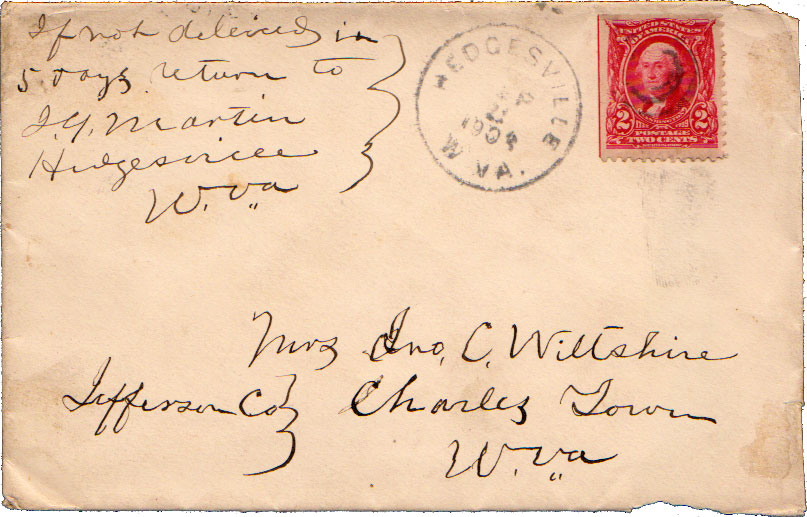 If not delivered in
5 days return to
J. Y. Martin
Hedgesville
W. Va
HEDGESVILLE
W. VA.
UNITED STATES
OF AMERICA
2 2
POSTAGE
TWO CENTS
Mrs Jno. C. Wiltshire
Jefferson Co Charles Town
W. Va